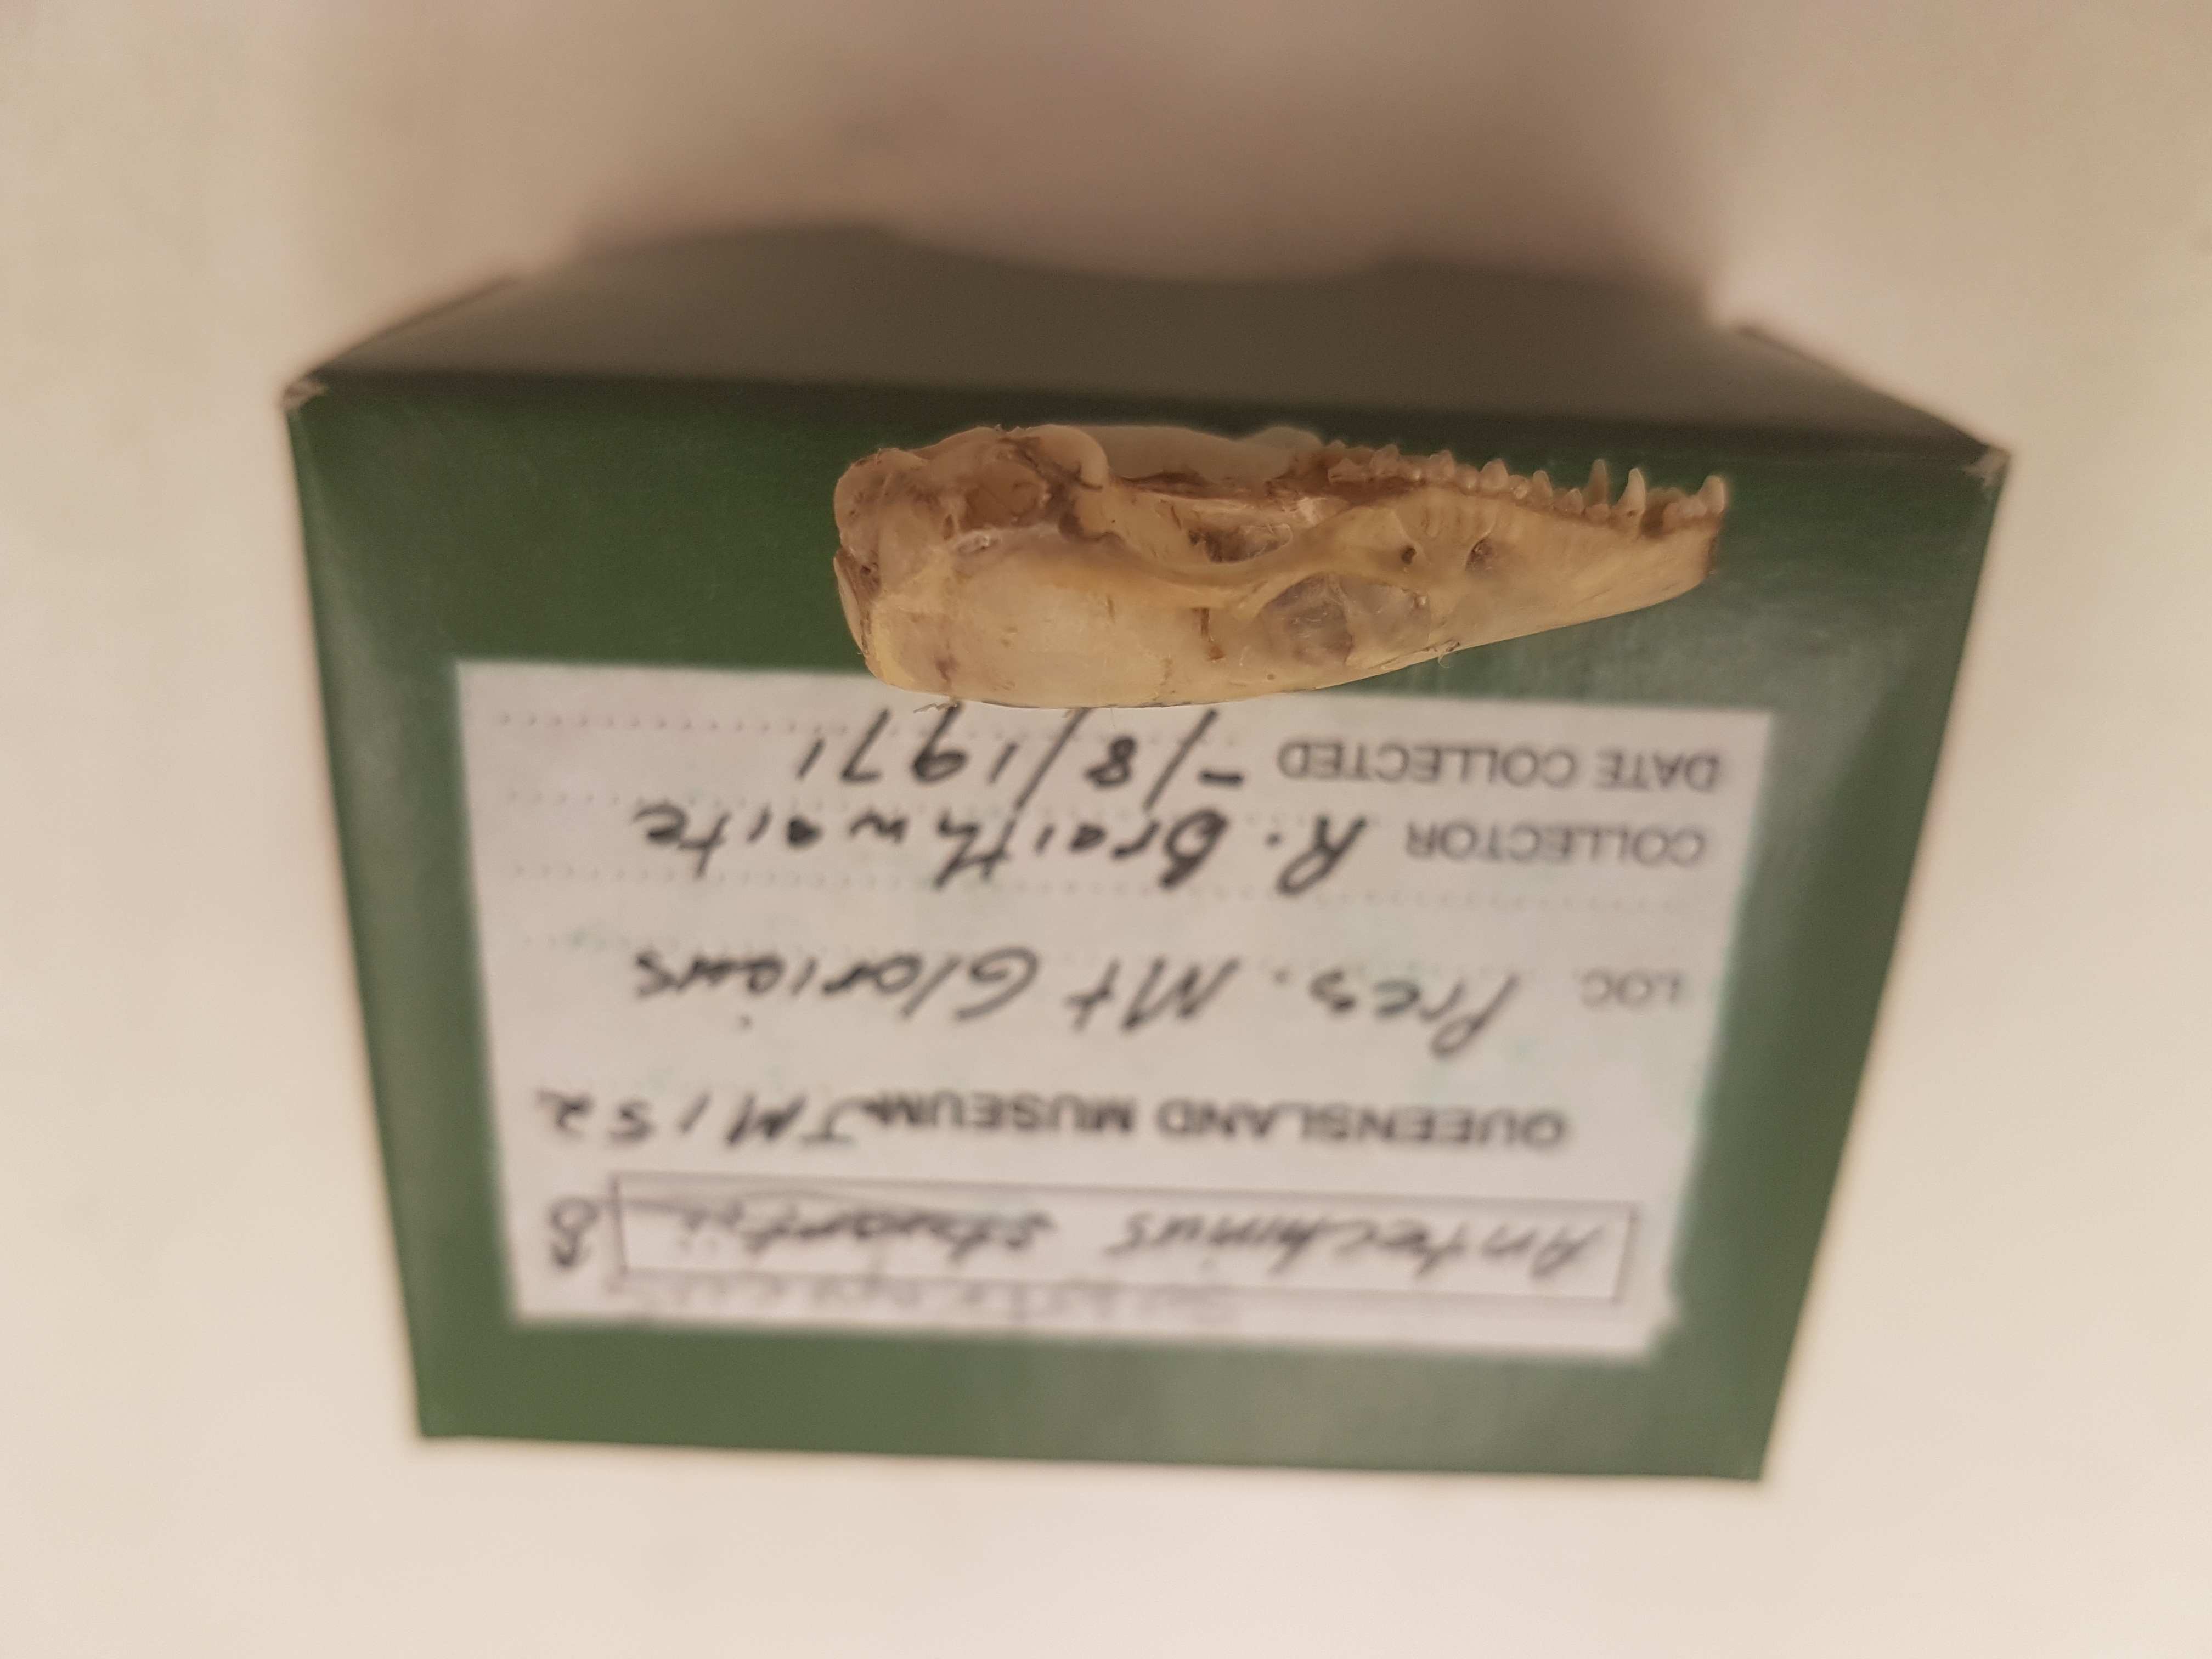 subtropicus
Antechinus stuartii ♂
QUEENSLAND MUSEUM JM152
LOC. Pres. Mt Glorious
COLLECTOR R. Braithwaite
DATE COLLECTED -/8/1971